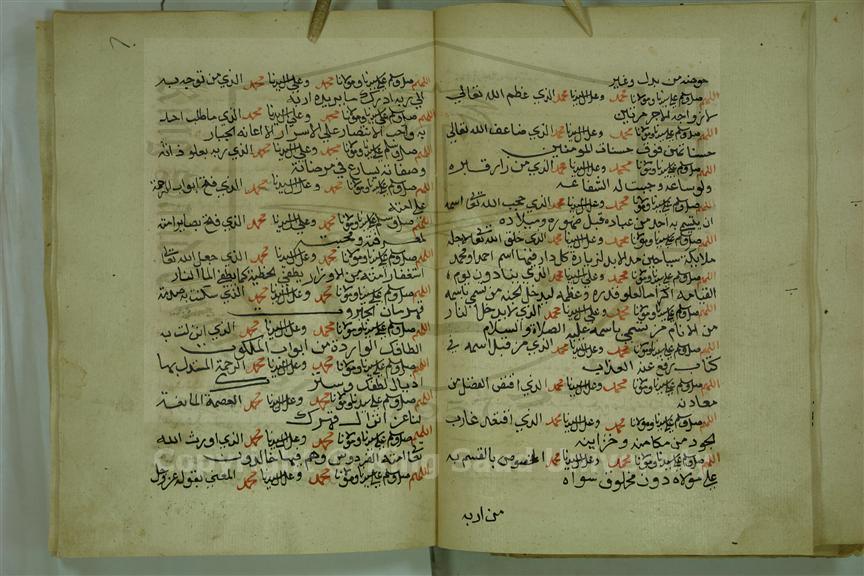 حوضه من بدل وغير
اللهم صل وسلم على سيدنا ومولانا محمد وعلى ال سيدنا محمد الذي عظم الله تعالى
لازواجه الاجر مرتين
اللهم صل وسلم على سيدنا ومولانا محمد وعلى ال سيدنا محمد الذي ضاعف الله تعالى
حسناتهن فوق حسنات المومنين
اللهم صل وسلم على سيدنا ومولانا محمد وعلى ال سيدنا محمد الذي من زار قبره
ولو ساعة وجبت له الشفاعة
اللهم صل وسلم على سيدنا ومولانا محمد وعلى ال سيدنا محمد الذي حجب الله تعا اسمه
ان يتسمى به احد من عباده قبل ظهوره وميلاده
اللهم صل وسلم على سيدنا ومولانا محمد وعلى ال سيدنا محمد الذي خلق الله تعا لاجله
ملائكة سياحين مدد الابد لزيارة كل دار فيها اسم احمد ومحمد
اللهم صل وسلم على سيدنا ومولانا محمد وعلى ال سيدنا محمد الذي ينادون يوم
القيامة اكراما لعلو قدره وعظمه ليدخل الجنة من تسمى باسمه
اللهم صل وسلم على سيدنا ومولانا محمد وعلى ال سيدنا محمد الذي لا يدخل النار
من الانام من تسمى باسمه عليه الصلاة والسلام
اللهم صل وسلم على سيدنا ومولانا محمد وعلى ال سيدنا محمد الذي من قبل اسمه في
كتاب رفع عنه العذاب
اللهم صل وسلم على سيدنا ومولانا محمد وعلى ال سيدنا محمد الذي اقتض الفضل من
معادنه
اللهم صل وسلم على سيدنا ومولانا محمد وعلى ال سيدنا محمد الذي اقتعد غارب
الجود من مكامنه وخزاينه
اللهم صل وسلم على سيدنا ومولانا محمد وعلى ال سيدنا محمد المخصوص بالقسم به
على مولاه دون مخلوق سواه
من اربه
اللهم صل وسلم على سيدنا ومولانا محمد وعلى ال سيدنا محمد الذي من توجه به
الى ربه ادرك ما يريده اربه
اللهم صل وسلم على سيدنا ومولانا محمد وعلى ال سيدنا محمد الذي ما طلب احد
به واحب الانتصار على الاسرار الا اعانه الجبار
اللهم صل وسلم على سيدنا ومولانا محمد وعلى ال سيدنا محمد الذي ربه بعلو ذاته
وصفاته يسارع في مرضاته
اللهم صل وسلم على سيدنا ومولانا محمد وعلى ال سيدنا محمد الذي فتح ابواب الرحمة
على امته
اللهم صل وسلم على سيدنا ومولانا محمد وعلى ال سيدنا محمد الذي فتح بصاير امته
لمعرفته ومحبته
اللهم صل وسلم على سيدنا ومولانا محمد وعلى ال سيدنا محمد الذي جعل الله تعا
استغفار امته من الاوزار يطفي الخطية كما يطفي الما النار
اللهم صل وسلم على سيدنا ومولانا محمد وعلى ال سيدنا محمد الذي سكت بصدمة
قهرمان الجبروت
اللهم صل وسلم على سيدنا ومولانا محمد وعلى ال سيدنا محمد الذي انزلت به
الطافك الواردة من ابواب الملكوت
اللهم صل وسلم على سيدنا ومولانا محمد وعلى ال سيدنا محمد الرحمة المنسدل بها
اذيال لطفك وستر
اللهم صل وسلم على سيدنا ومولانا محمد وعلى ال سيدنا محمد العصمة المانعة
لنا عن انزال قهرك
اللهم صل وسلم على سيدنا ومولانا محمد وعلى ال سيدنا محمد الذي اورث الله
تعا امته الفردوس وهم فيها خالدون
اللهم صل وسلم على سيدنا ومولانا محمد وعلى ال سيدنا محمد المعني بقوله عز وجل